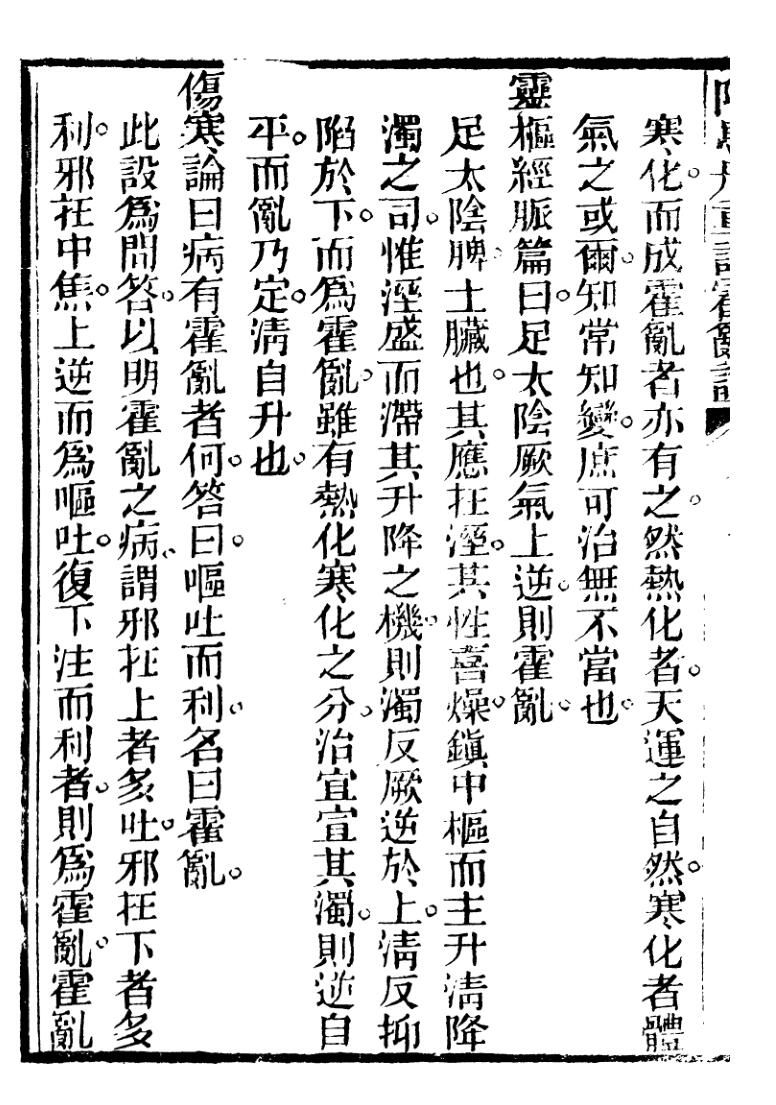 寒化。而成霍亂者亦有之。然熱化者。天運之自然。寒化者體
氣之或爾。知常知變。庶可治無不當也。
靈樞經脈篇曰。足太陰厥氣上逆。則霍亂。
足太陰脾。土臟也。其應在溼。其性喜燥。鎮中樞而主升清降
濁之司。惟溼盛而滯其升降之機。則濁反厥逆於上。清反抑
陷於下。而爲霍亂。雖有熱化寒化之分。治宜宣其濁。則逆自
平。而亂乃定。清自升也。
傷寒論曰。病有霍亂者何。答曰。嘔吐而利。名曰霍亂。
此設爲問答。以明霍亂之病。謂邪在上者多吐。邪在下者多
利。邪在中焦。上逆而爲嘔吐。復下注而利者。則爲霍亂。霍亂